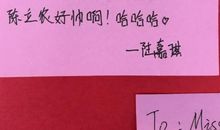 陈立农好帅啊！哈哈哈♡
—陆嘉琪
To: Miss